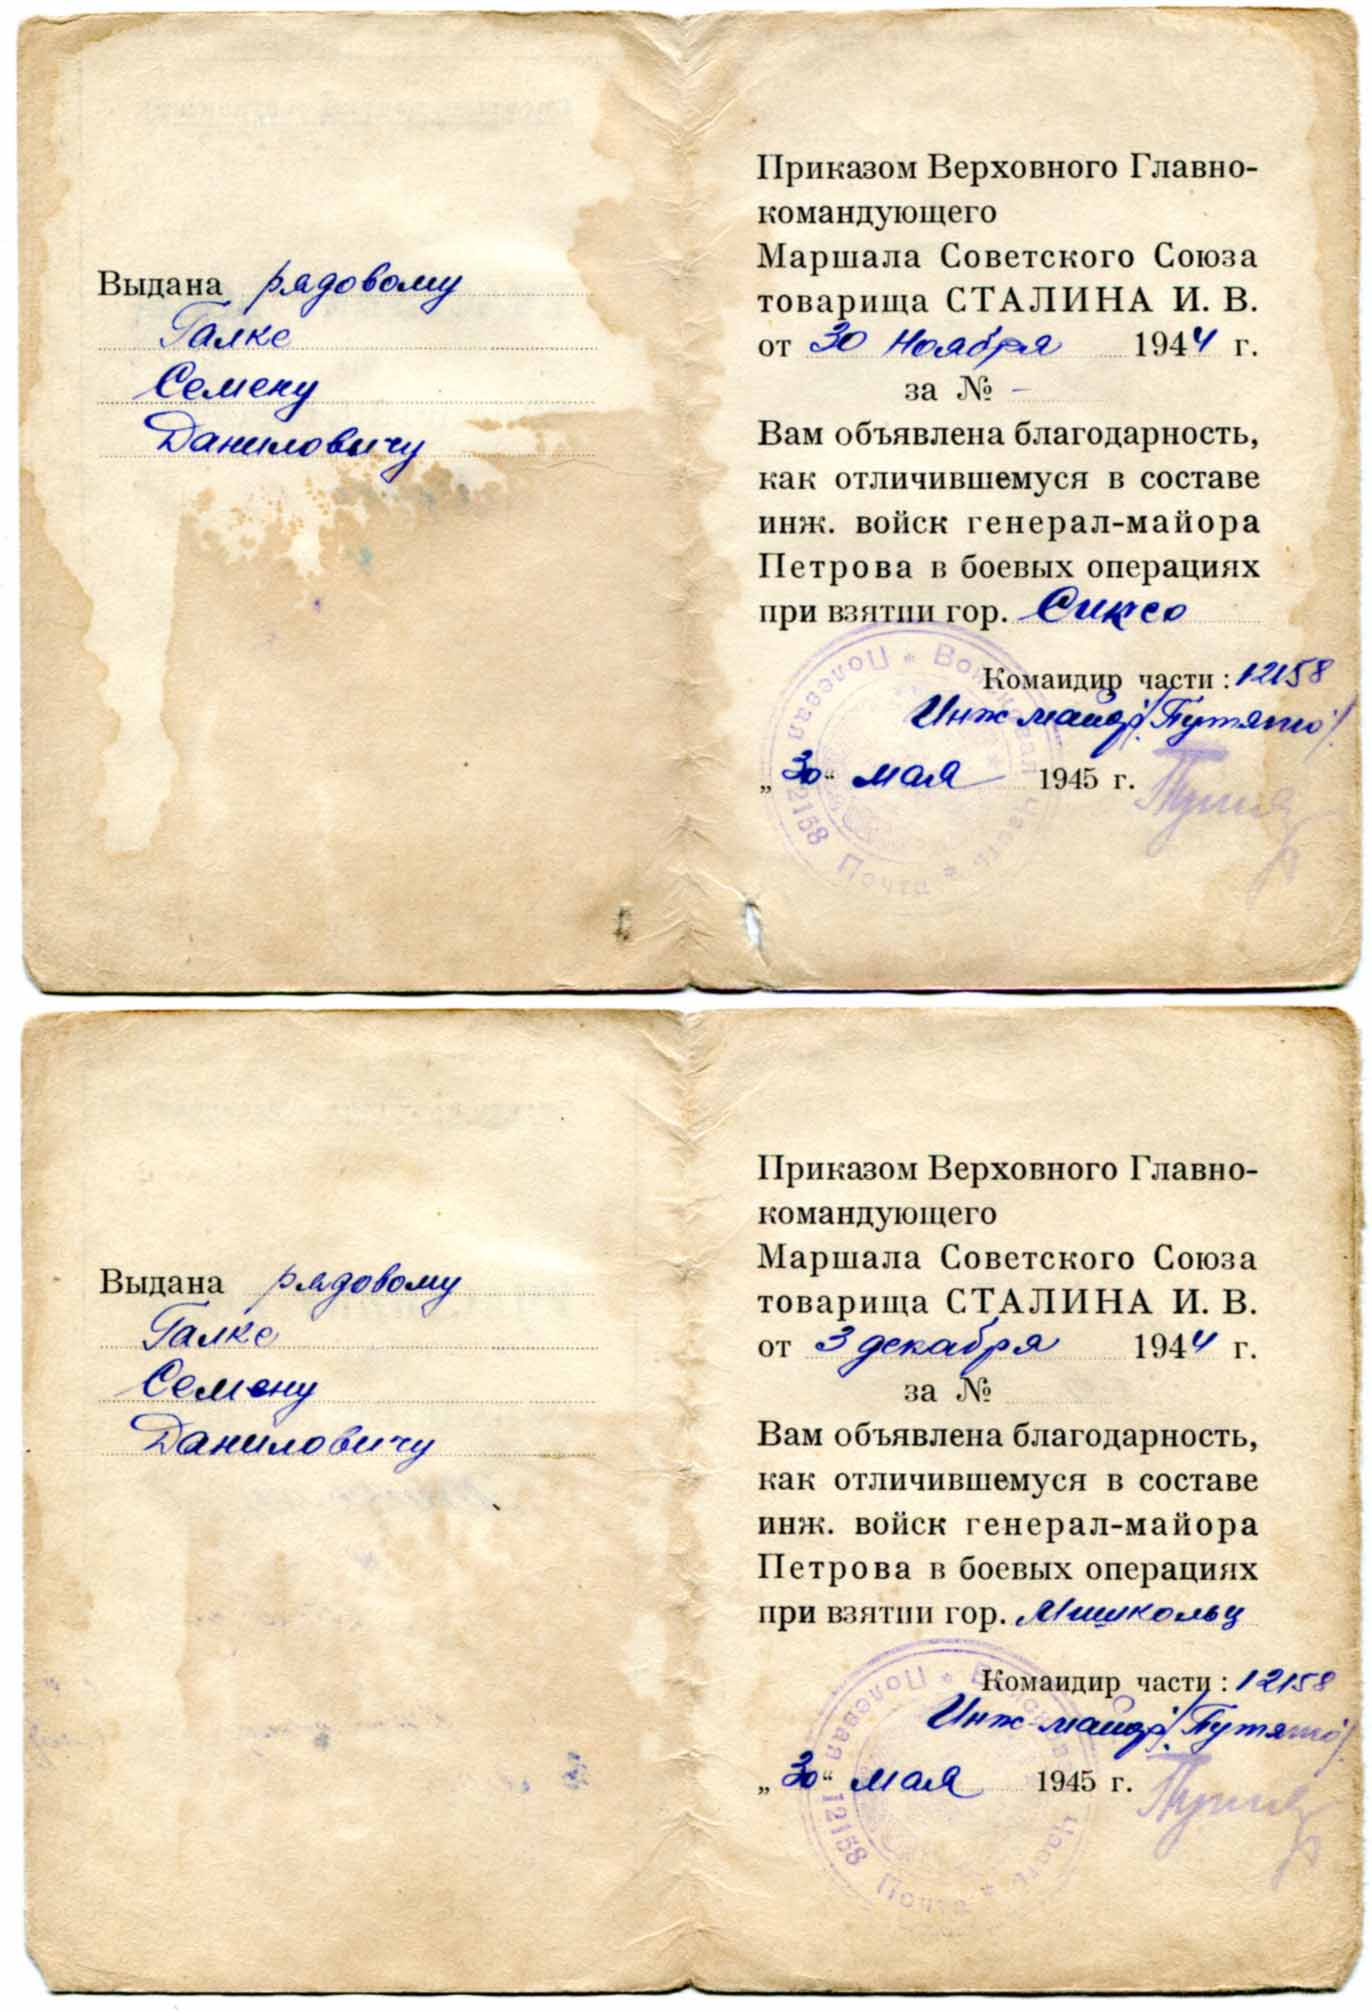 Выдана рядовому
Галке
Семену
Даниловичу
Приказом Верховного Главно-
командующего
Маршала Советского Союза
товарища СТАЛИНА И. В.
от 30 Ноября 1944 г.
за № -
Вам объявлена благодарность,
как отличившемуся в составе
инж. войск генерал-майора
Петрова в боевых операциях
при взятии гор. Сиксо
Командир части: 12158
Инж майор /Путято/
„30“ мая 1945 г.
Полевая Почта * Войсковая Часть * 12158
Выдана рядовому
Галке
Семену
Даниловичу
Приказом Верховного Главно-
командующего
Маршала Советского Союза
товарища СТАЛИНА И. В.
от 3 декабря 1944 г.
за №
Вам объявлена благодарность,
как отличившемуся в составе
инж. войск генерал-майора
Петрова в боевых операциях
при взятии гор. Мишкольц
Командир части: 12158
Инж-майор /Путято/
„30“ мая 1945 г.
Полевая Почта * Войсковая Часть * 12158